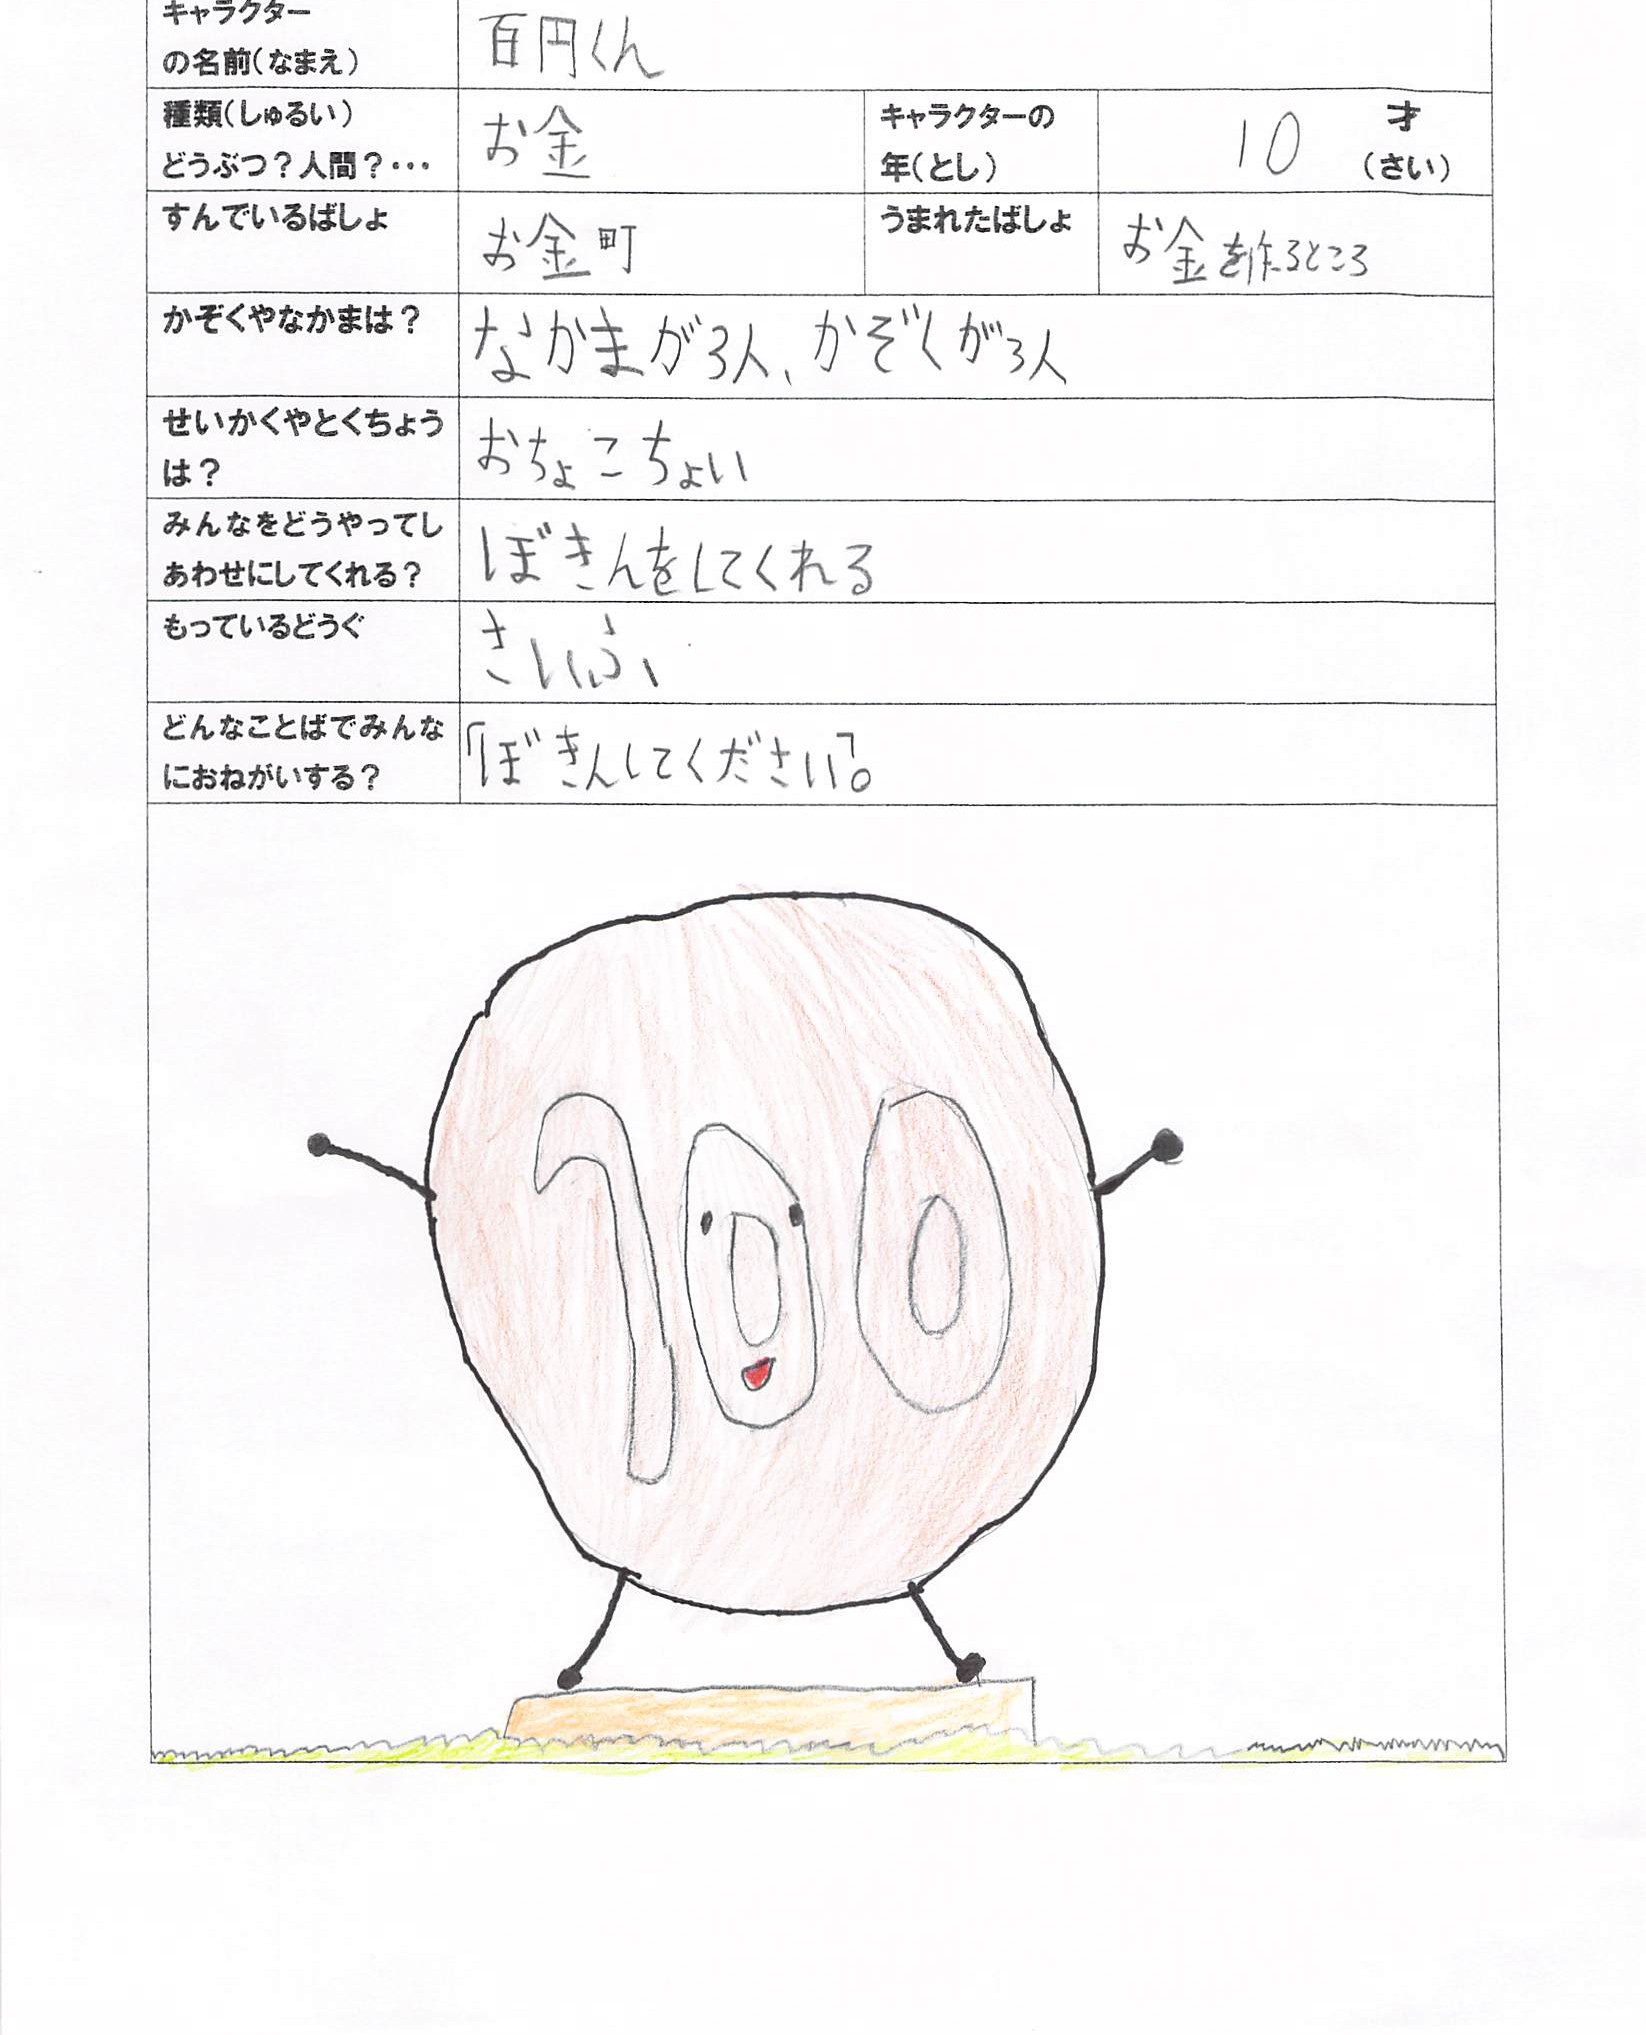 キャラクター
の名前(なまえ)
百円くん
種類(しゅるい)
どうぶつ？人間？・・・
お金
キャラクターの
年(とし)
10
才
(さい)
すんでいるばしょ
お金町
うまれたばしょ
お金を作るところ
かぞくやなかまは？
なかまが3人、かぞくが3人
せいかくやとくちょう
は？
おちょこちょい
みんなをどうやってし
あわせにしてくれる？
ぼきんをしてくれる
もっているどうぐ
さいふ
どんなことばでみんな
におねがいする？
「ぼきんしてください」。
100